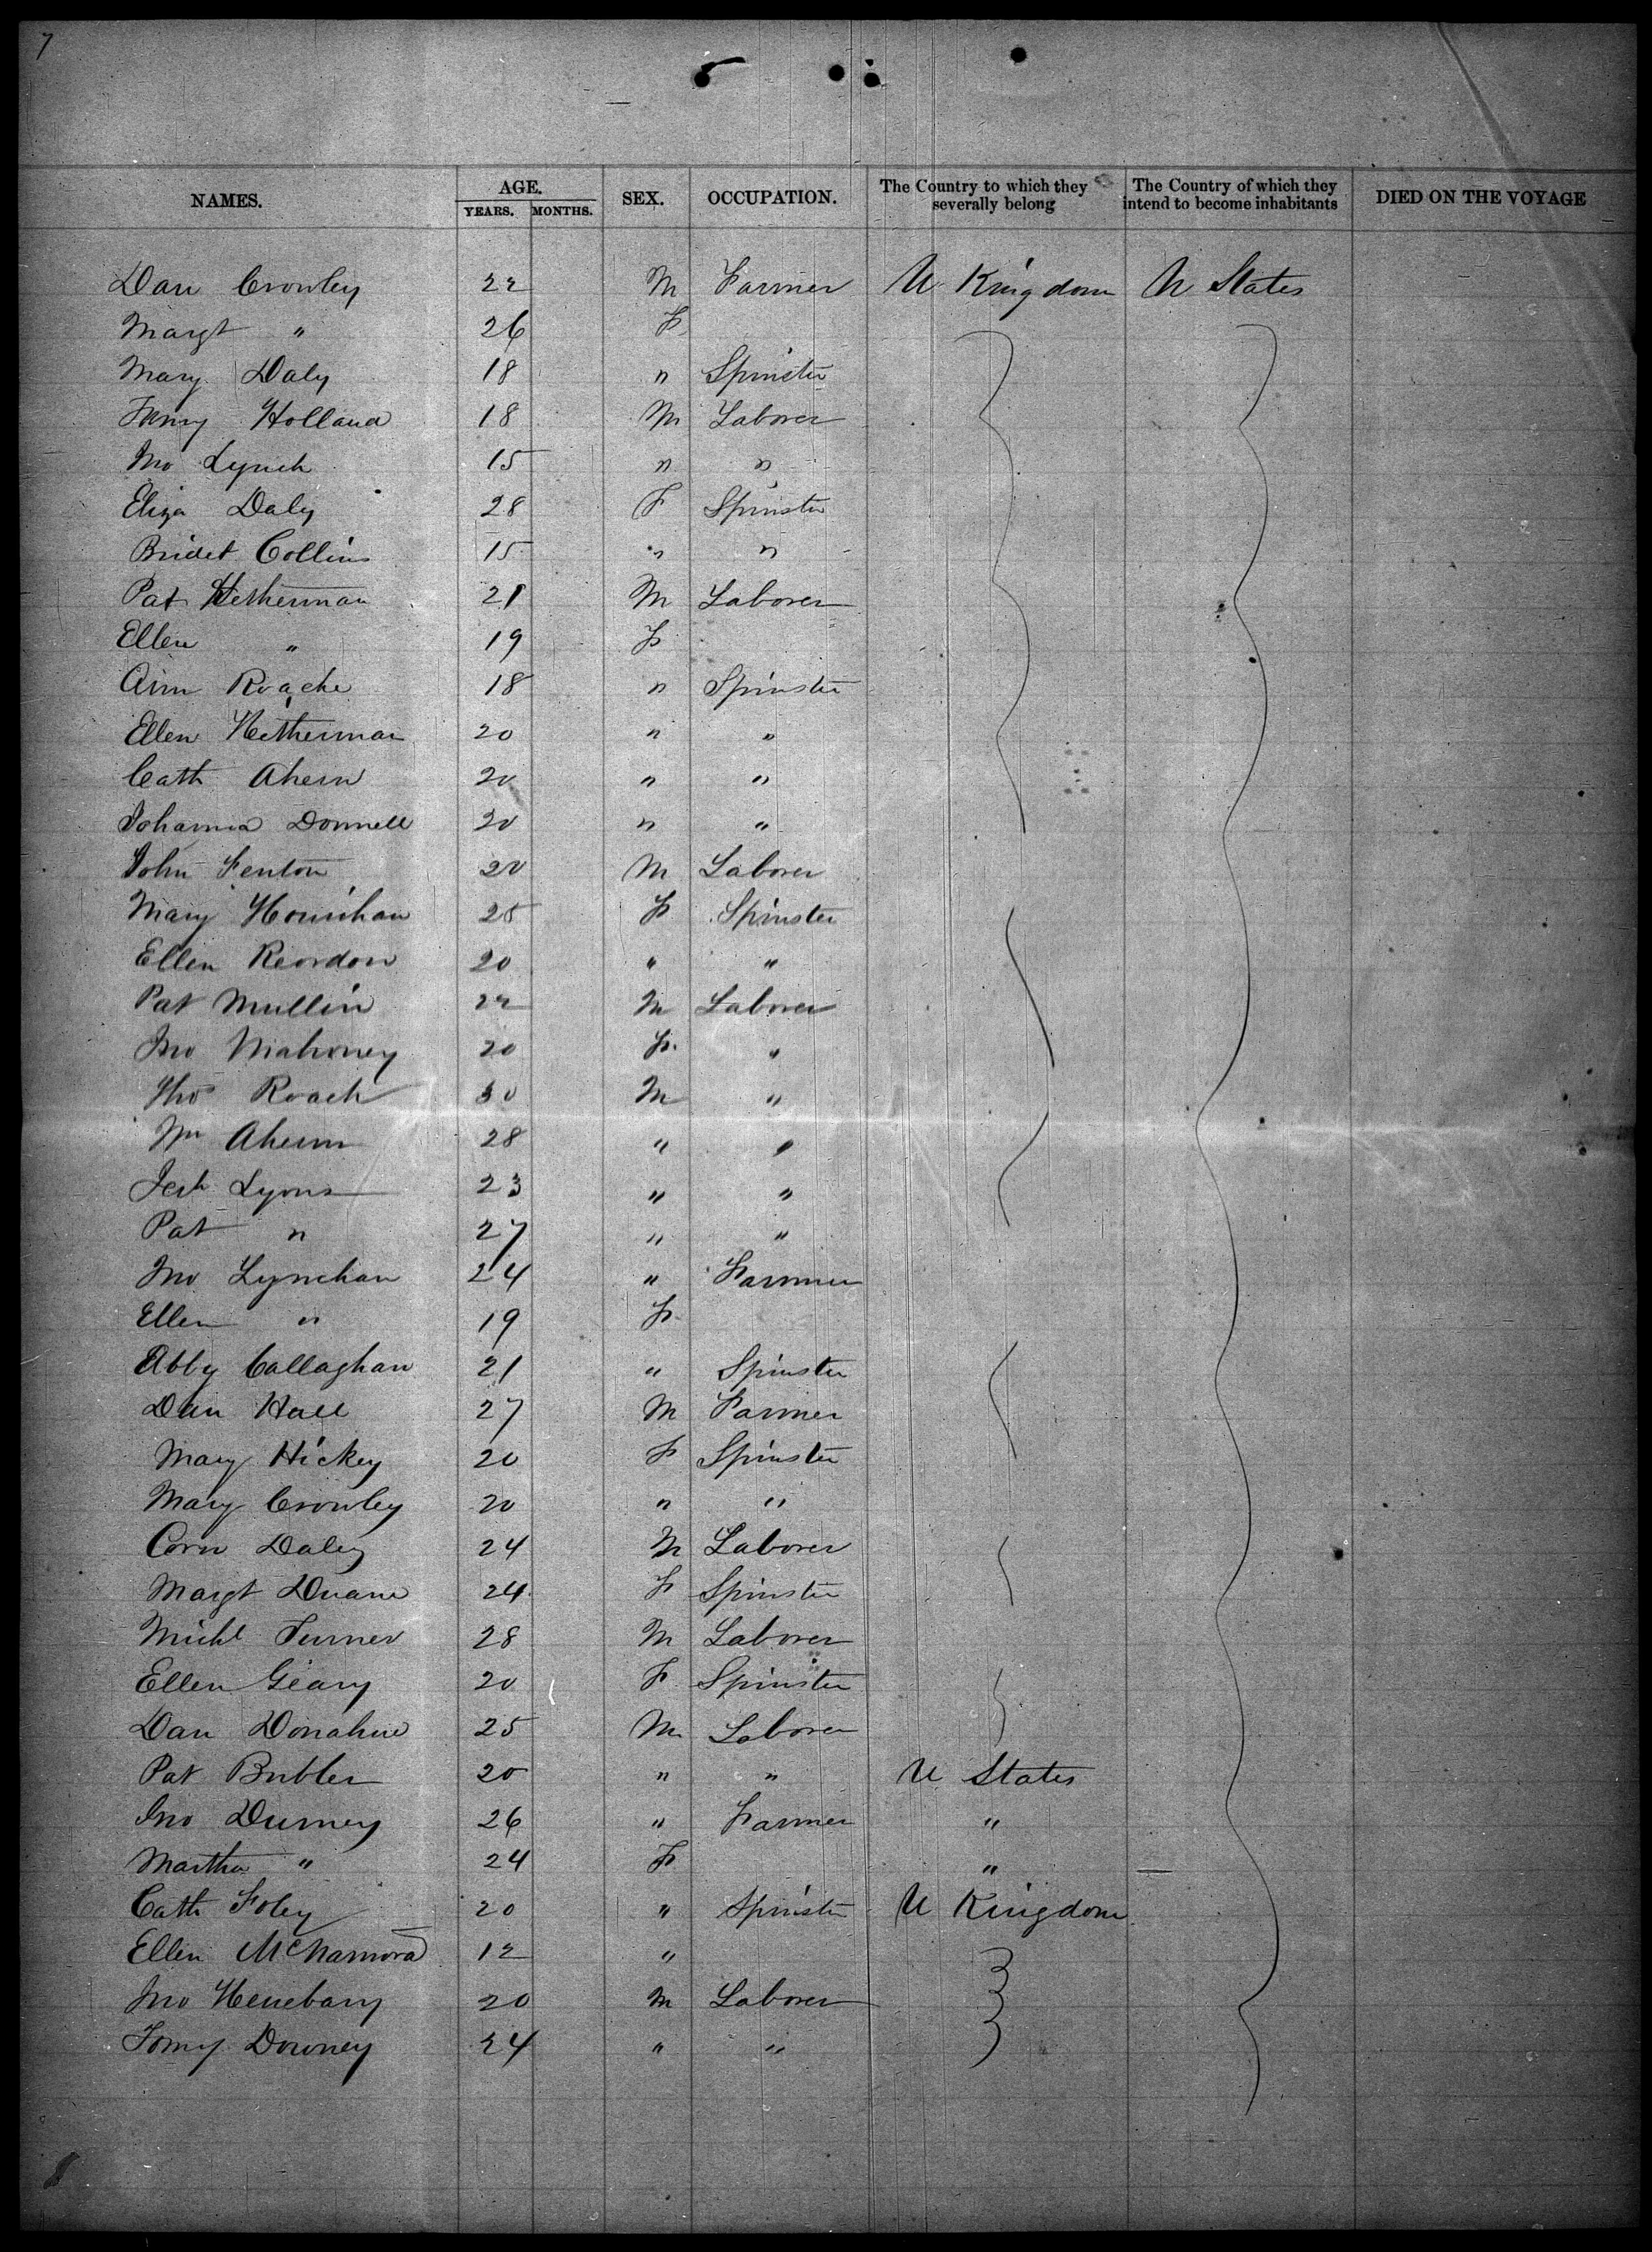 7
NAMES. AGE. YEARS. MONTHS. SEX. OCCUPATION. The Country to which they severally belong The Country of which they intend to become inhabitants DIED ON THE VOYAGE
Dan Crowley 22 M Farmer U Kingdom U States
Margt " 26 F
Mary Daly 18 " Spinster
Holland 18 M Laborer
Jno Lynch 15 " "
Eliza Daly 28 F Spinster
Bridet Collins 15 " "
Pat Hetherman 21 M Laborer
Ellen " 19 F
Ann Roache 18 " Spinster
Ellen Hetherman 20 " "
Cath Ahern 20 " "
Johanna Donnell 20 " "
John Fenton 20 M Laborer
Mary Hourihan 25 F Spinster
Ellen Reordon 20 " "
Pat Mullin 22 M Laborer
Jno Mahoney 20 F. "
Thos Roach 30 M "
Wm Ahern 28 " "
Jerh Lyons 23 " "
Pat " 27 " "
Jno Lynehan 24 " Farmer
Ellen " 19 F
Abby Callaghan 21 " Spinster
Dan Hall 27 M Farmer
Mary Hickey 20 F Spinster
Mary Crowley 20 " "
Corn Daley 24 M Laborer
Margt Duane 24 F Spinster
Michl Turner 28 M Laborer
Ellen Geary 20 F Spinster
Dan Donahue 25 M Laborer
Pat Butler 20 " " U States
Jno Durney 26 " Farmer "
Martha " 24 F "
Cath Foley 20 " Spinster U Kingdom
Ellen McNamara 12 "
Jno Henebary 20 M Laborer
Downey 24 " "